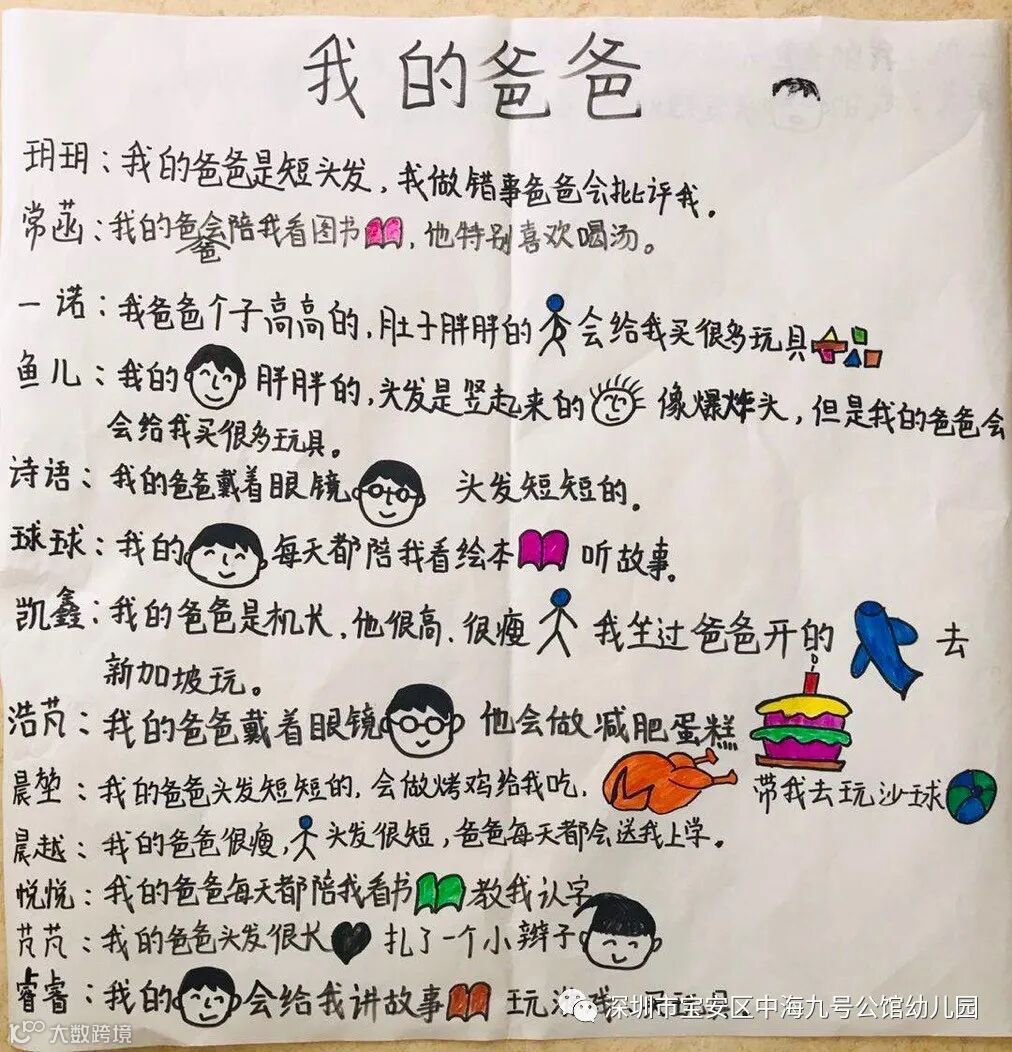 我的爸爸
玥玥：我的爸爸是短头发，我做错事爸爸会批评我。
常菡：我的爸爸会陪我看图书，他特别喜欢喝汤。
一诺：我爸爸个子高高的，肚子胖胖的会给我买很多玩具
鱼儿：我的胖胖的，头发是竖起来的像爆炸头，但是我的爸爸会
会给我买很多玩具。
诗语：我的爸爸戴着眼镜头发短短的。
球球：我的每天都陪我看绘本听故事。
凯鑫：我的爸爸是机长，他很高，很瘦我坐过爸爸开的去
新加坡玩。
浩芃：我的爸爸戴着眼镜他会做减肥蛋糕
晨堃：我的爸爸头发短短的，会做烤鸡给我吃，带我去玩沙球
晨越：我的爸爸很瘦，头发很短，爸爸每天都会送我上学。
悦悦：我的爸爸每天都陪我看书教我认字
芃芃：我的爸爸头发很长扎了一个小辫子
睿睿：我的会给我讲故事玩
深圳市宝安区中海九号公馆幼儿园
大数跨境